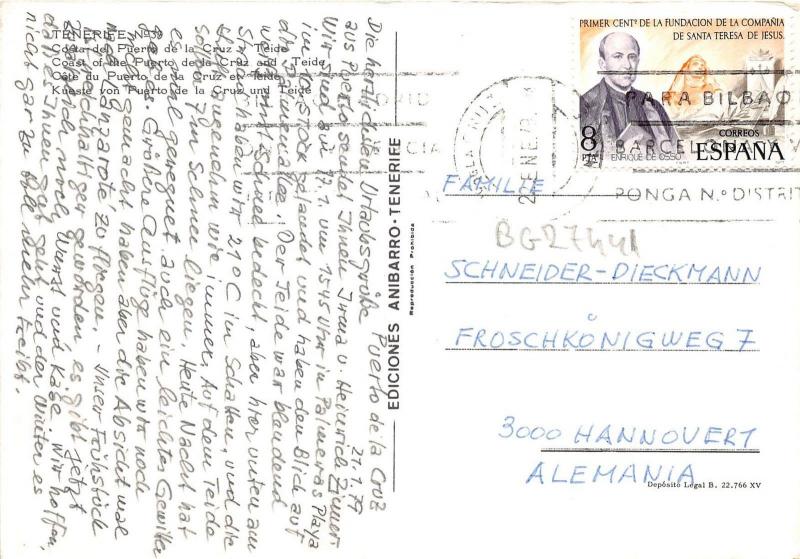 TENERIFE Nº 39
Costa del Puerto de la Cruz y Teide
Coast of the Puerto de la Cruz and Teide
Côte du Puerto de la Cruz et Teide
Kueste von Puerto de la Cruz und Teide
Puerto de la Cruz
21.1.79
Die herzlichsten Urlaubsgrüße
aus Puerto sendet Ihnen Irma u. Heinrich
Wir sind am 17.1. um 1545 Uhr in Palmeras Playa
im Stock gelandet und haben den Blick auf
Der Teide war blendend
weiß mit Schnee bedeckt, aber hier unten am
haben wir 21°C im Schatten, und die
Sonne wie immer. Auf dem Teide
soll Schnee liegen. Heute Nacht hat
es mal geregnet auch ein leichtes Gewitter
Größere Ausflüge haben wir noch
nicht gemacht haben aber die Absicht mal
nach Lanzarote zu fliegen. – Unser Frühstück
ist geworden es gibt jetzt
noch Wurst und Käse. Wir hoffen,
daß es Ihnen gut geht und der Winter es
nicht gar zu toll mehr treibt.
EDICIONES ANIBARRO - TENERIFE
Reproducción Prohibida
PRIMER CENTº DE LA FUNDACION DE LA COMPAÑIA
DE SANTA TERESA DE JESUS.
8 PTA
ENRIQUE DE OSSO
CORREOS
ESPAÑA
PARA BILBAO
BARCELONA
PONGA N.º DISTRIT
ENE. 79
FAMILIE
BG27441
SCHNEIDER-DIECKMANN
FROSCHKÖNIGWEG 7
3000 HANNOVER 1
ALEMANIA
Depósito Legal B. 22.766 XV